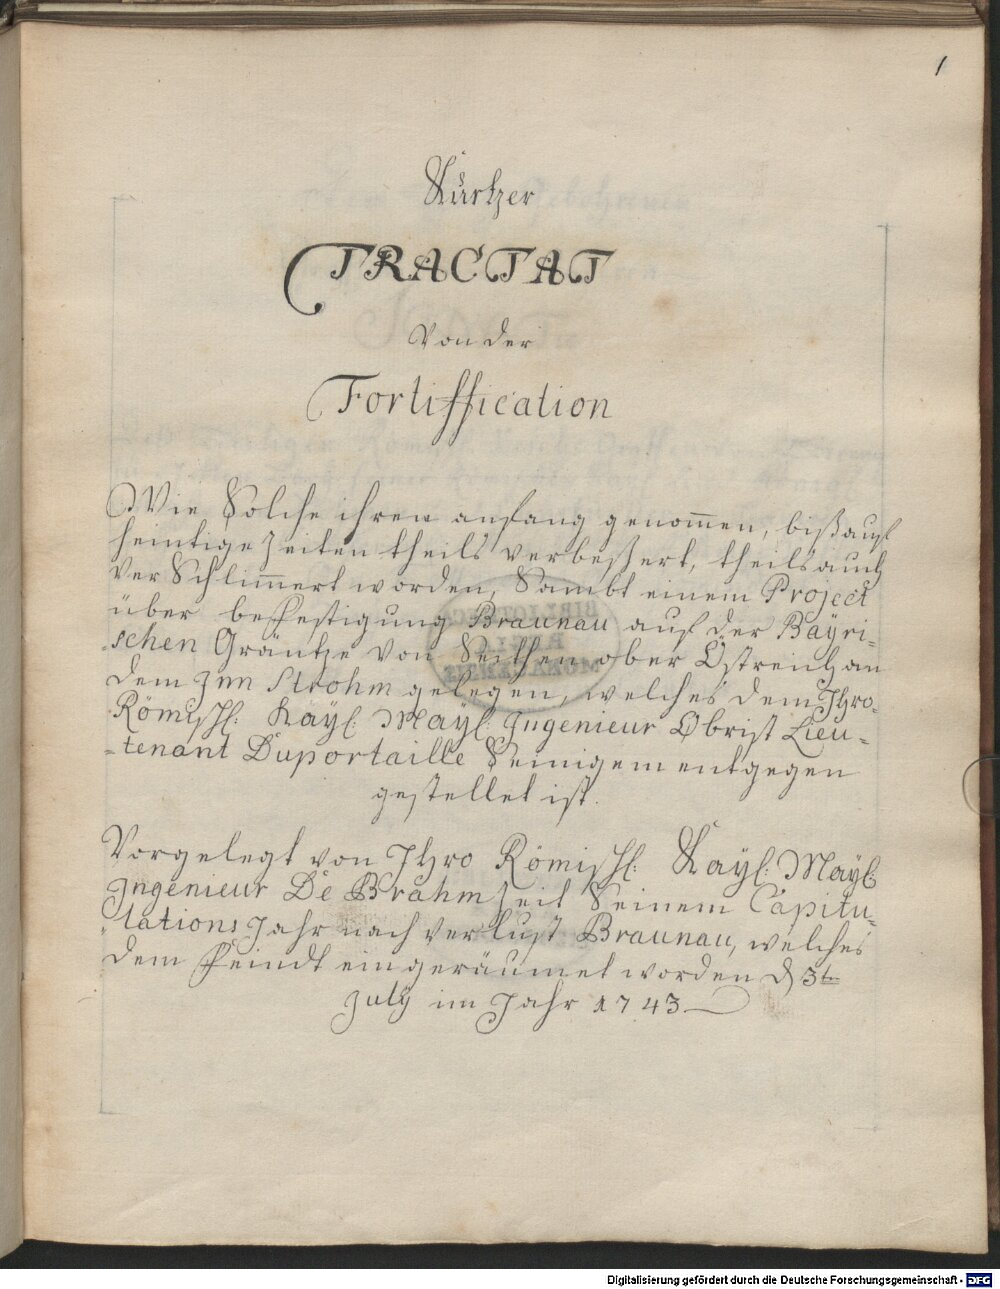 1
Kürtzer
TRACTAT
Von der
Fortiffication
Wie Solche ihren anfang genom̄en, bißauf
heintige Zeiten theils verbeßert, theils auch
ver Schlim̄ert worden, Sambt einem Project
über beffestigung Braunau auf der Bayri-
schen Gräntze von Seithen ober Östreich an
dem Jnn Strohm gelegen, welches dem Jhro
Römischl: Kayl: Mayl: Jngenieur Obrist Lieu-
-tenant Duportaille Seinigem entgegen
gestellet ist.
Vorgelegt von Jhro Römischl: Kayl: Mayl:
Jngenieur De Brahm Zeit Seinem Capitu-
-lations Jahr nach verlust Braunau, welches
dem Feindt eingeräumet worden d 3ten
July im Jahr 1743
BIBLIOTHECA
REGIA
MONACENSIS
Digitalisierung gefördert durch die Deutsche Forschungsgemeinschaft - DFG